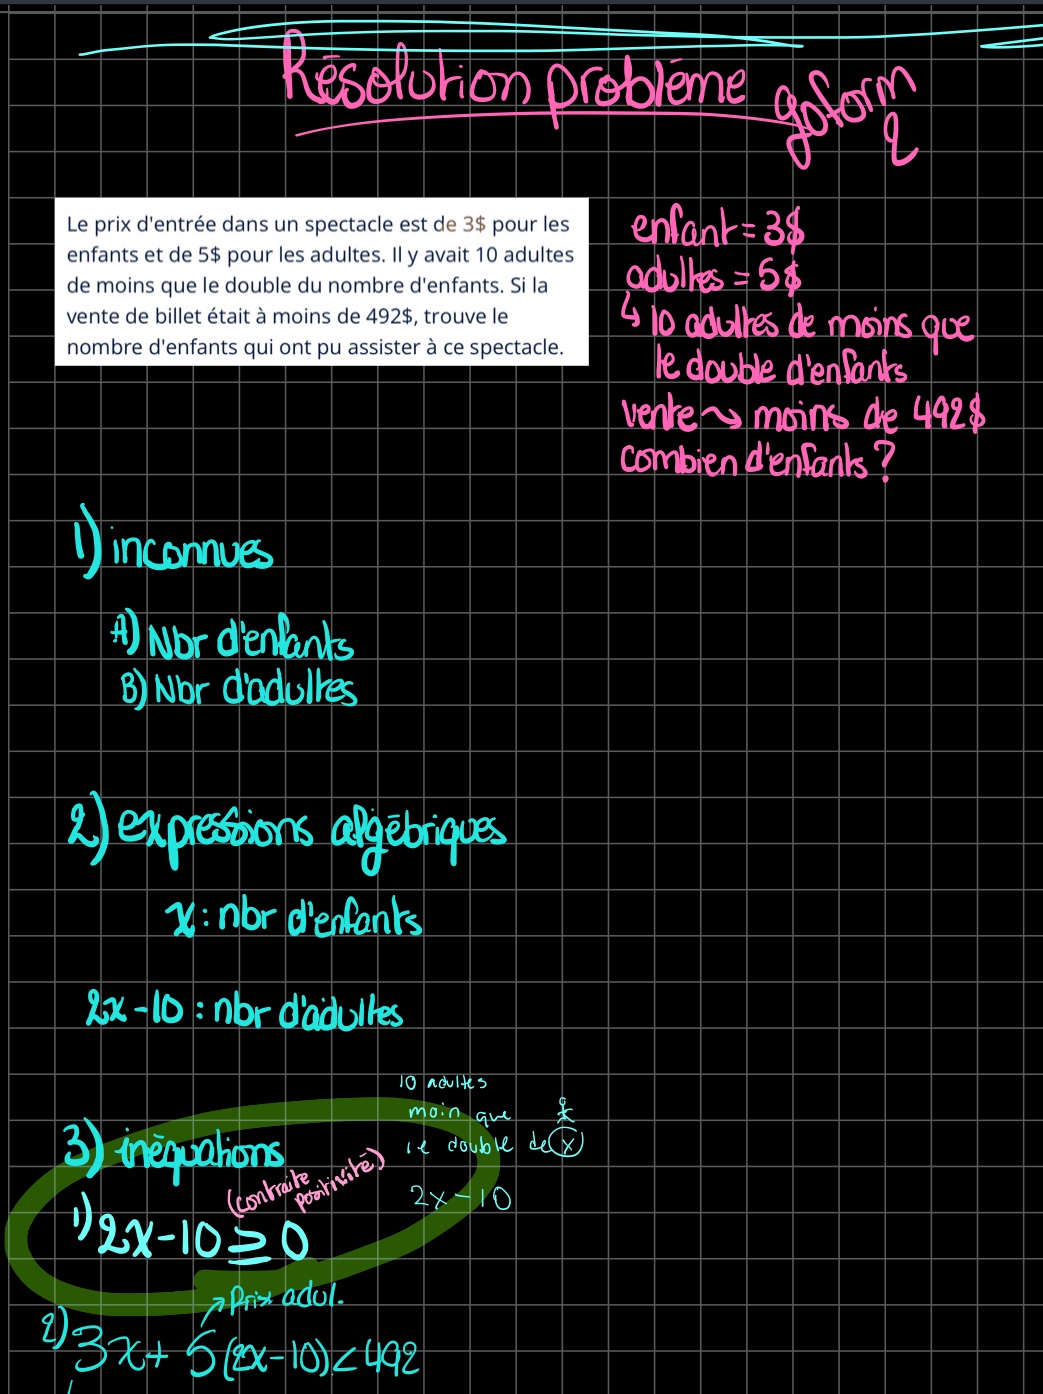 Résolution problème goform
2
Le prix d'entrée dans un spectacle est de 3$ pour les
enfants et de 5$ pour les adultes. Il y avait 10 adultes
de moins que le double du nombre d'enfants. Si la
vente de billet était à moins de 492$, trouve le
nombre d'enfants qui ont pu assister à ce spectacle.
enfant = 3$
adultes = 5$
↳ 10 adultes de moins que
le double d'enfants
vente ⤳ moins de 492$
combien d'enfants ?
1) inconnues
A) Nbr d'enfants
B) Nbr d'adultes
2) expressions algébriques
x : nbr d'enfants
2x - 10 : nbr d'adultes
10 adultes
moin que
le double de x
2x - 10
3) inéquations
(contraite
positivité)
1) 2x - 10 ≥ 0
→ Prix adul.
2) 3x + 5(2x-10) < 492